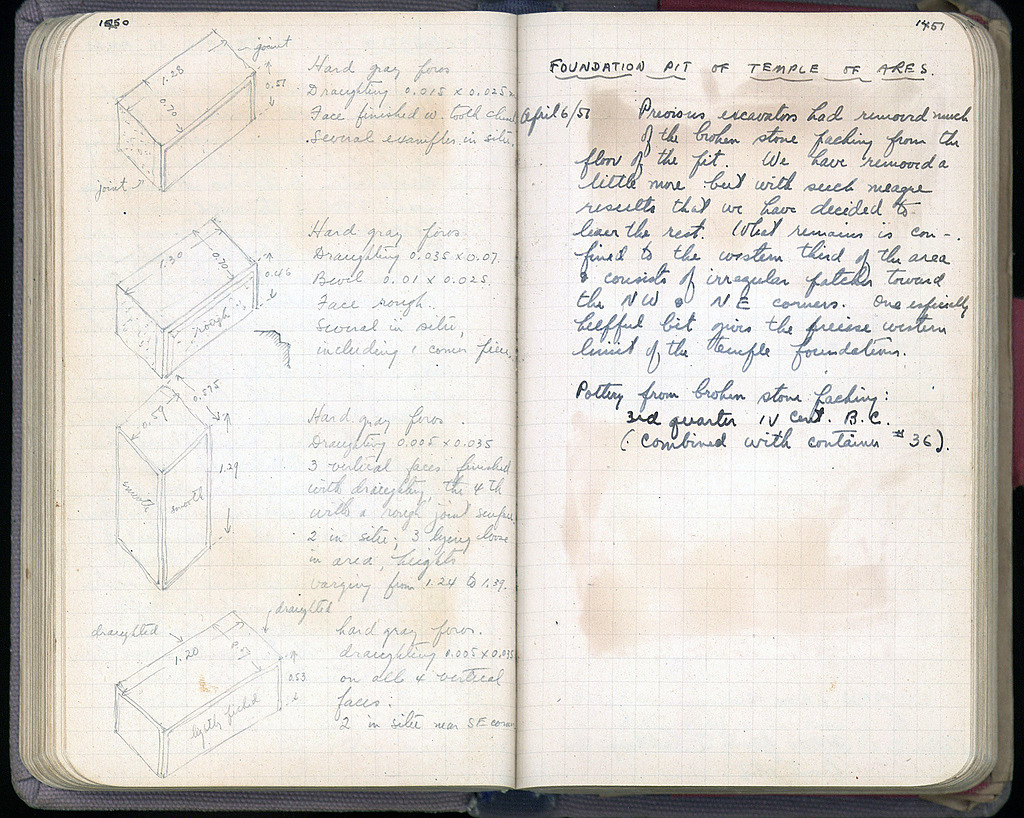 1550
joint
1.28
0.70
0.51
joint
Hard gray poros
Draughting 0.015 x 0.025
Face finished w. tooth chisel
Several examples in situ.
1.30
0.70
0.46
rough
Hard gray poros.
Draughting 0.035 x 0.07.
Bevel 0.01 x 0.025.
Face rough.
Several in situ,
including 1 corner piece.
0.59
0.595
1.29
smooth
smooth
Hard gray poros.
Draughting 0.005 x 0.035
3 vertical faces finished
with draughting, the 4th
with a rough joint surface.
2 in situ; 3 lying loose
in area, heights
varying from 1.24 to 1.39.
draughted
draughted
1.20
0.53
0.53
lightly picked
hard gray poros.
draughting 0.005 x 0.035
on all 4 vertical
faces.
2 in situ near SE corner
1451
FOUNDATION PIT OF TEMPLE OF ARES.
April 6/51 Previous excavators had removed much
of the broken stone packing from the
floor of the pit. We have removed a
little more but with such meagre
results that we have decided to
leave the rest. What remains is con-
fined to the western third of the area
& consists of irregular patches toward
the NW & NE corners. One especially
helpful bit gives the precise western
limit of the temple foundations.
Pottery from broken stone packing:
3rd quarter IV cent. B.C.
(combined with container #36).